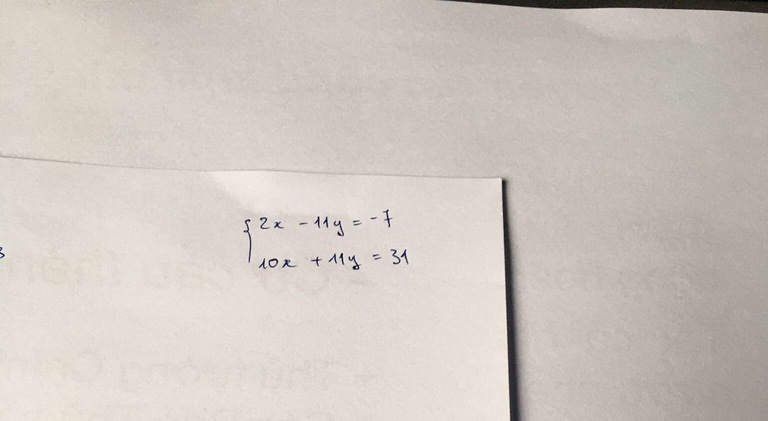 {2x - 11y = -7
10x + 11y = 31